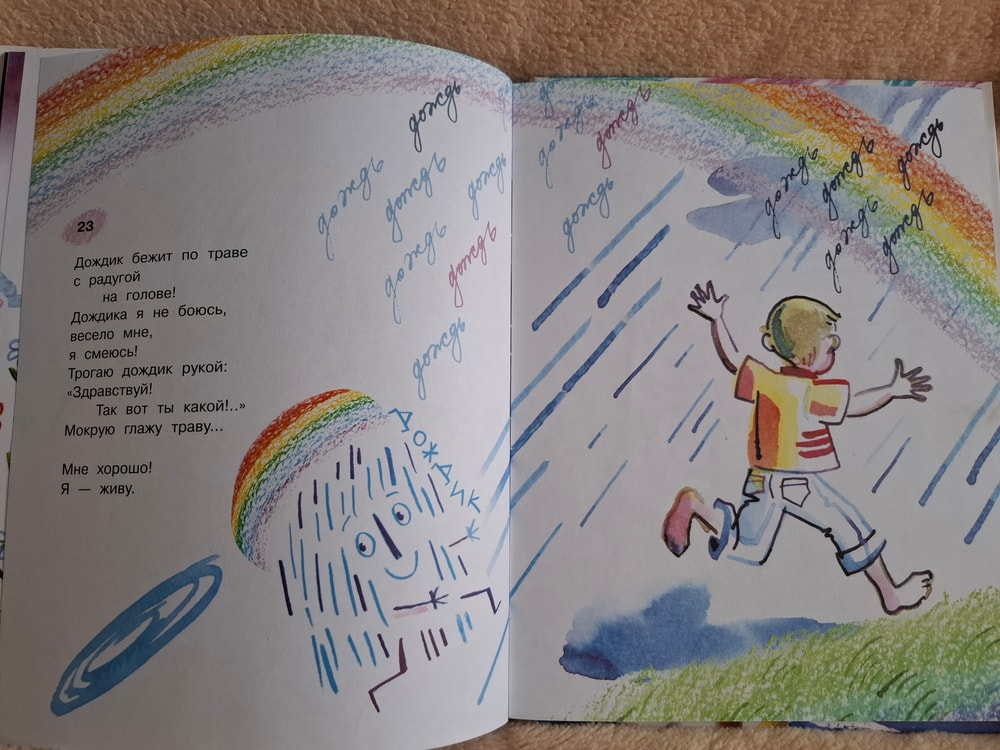 дождь
дождь
дождь
дождь
дождь
дождь
дождь
23
Дождик бежит по траве
с радугой
на голове!
Дождика я не боюсь,
весело мне,
я смеюсь!
Трогаю дождик рукой:
«Здравствуй!
Так вот ты какой!..»
Мокрую глажу траву...
Мне хорошо!
Я — живу.
Дождик
дождь
дождь
дождь
дождь
дождь
дождь
дождь
дождь